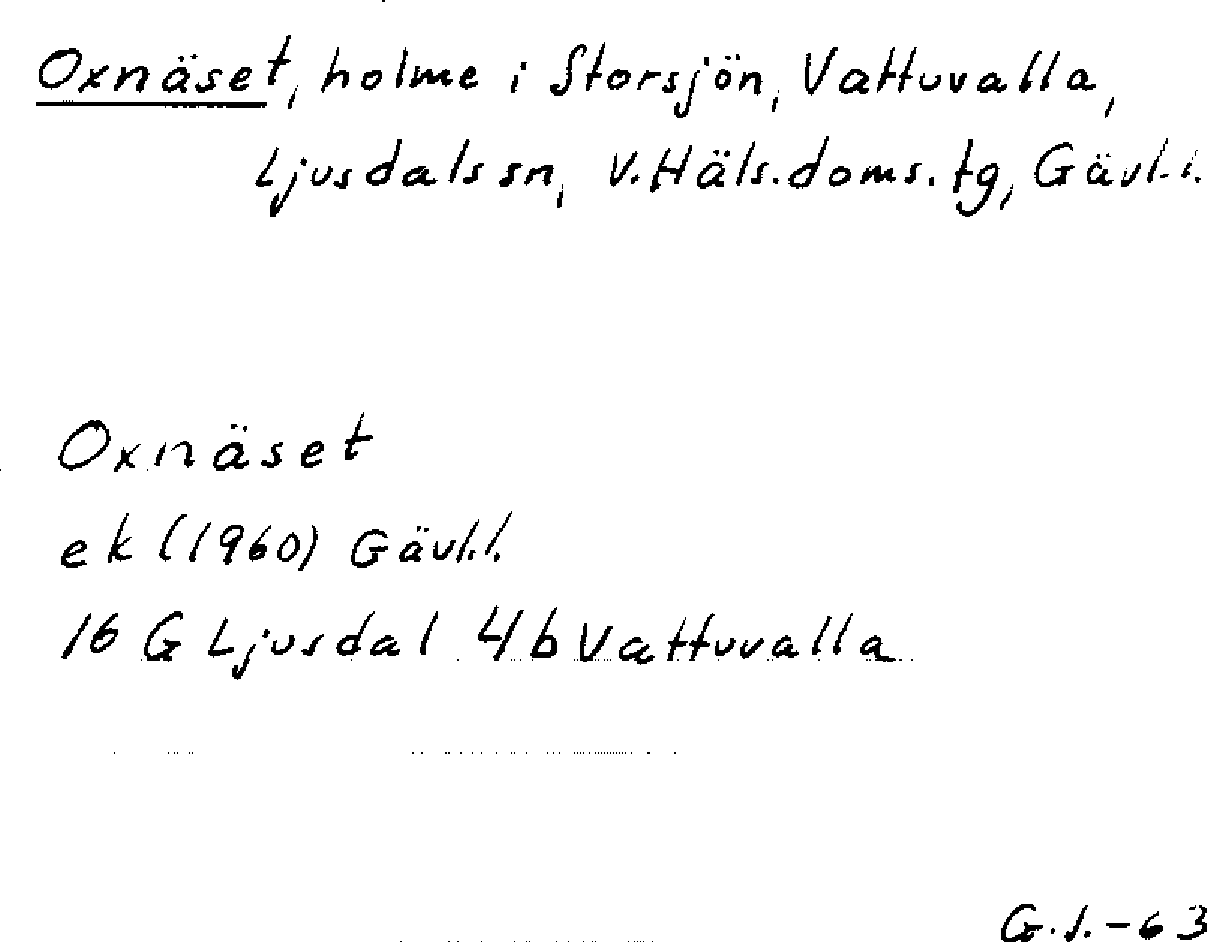 Oxnäset, holme i Storsjön, Vattuvalla,
Ljusdals sn, V.Häls.doms.tg, Gävl.l.
Oxnäset
ek (1960) Gävl.l.
16 G Ljusdal 4b Vattuvalla
G.S.-63